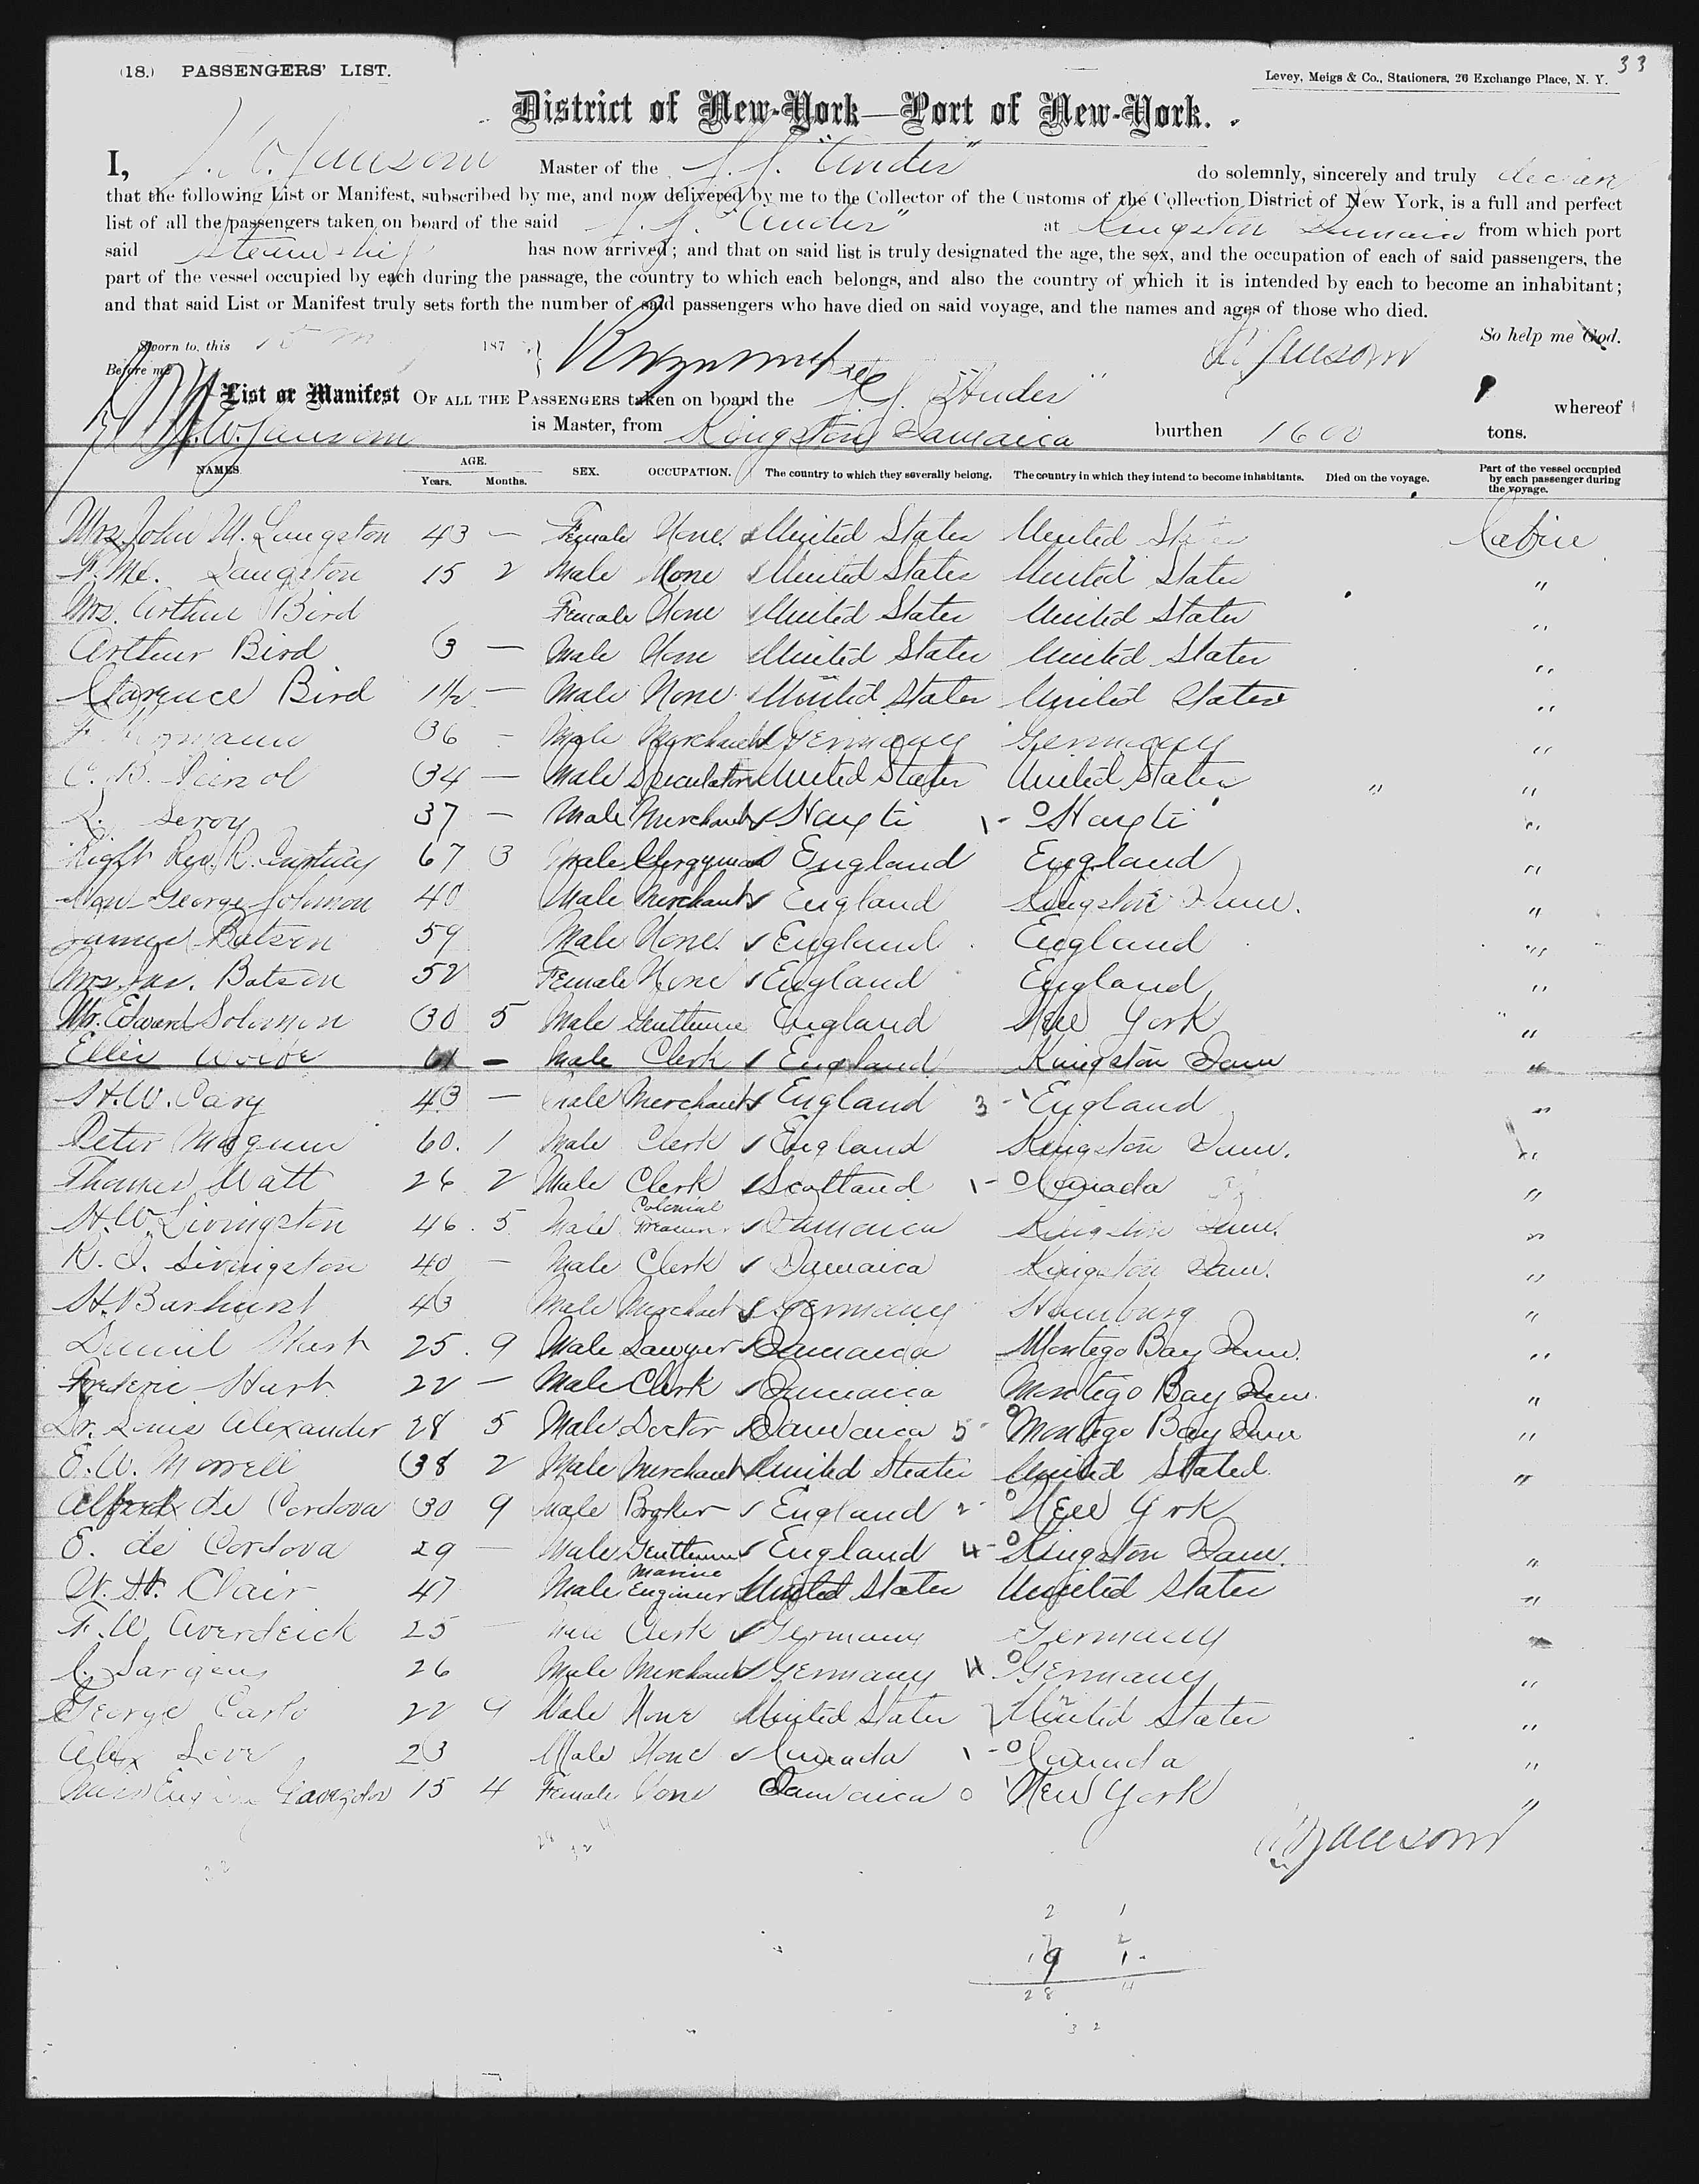 33
(18.) PASSENGERS' LIST.
Levey, Meigs & Co., Stationers, 26 Exchange Place, N. Y.
District of New-York—Port of New-York.
I, Jansom Master of the S.S. "Andes" do solemnly, sincerely and truly declare
that the following List or Manifest, subscribed by me, and now delivered by me to the Collector of the Customs of the Collection District of New York, is a full and perfect
list of all the passengers taken on board of the said S.S. "Andes" at Kingston Jamaica from which port
said Steamship has now arrived; and that on said list is truly designated the age, the sex, and the occupation of each of said passengers, the
part of the vessel occupied by each during the passage, the country to which each belongs, and also the country of which it is intended by each to become an inhabitant;
and that said List or Manifest truly sets forth the number of said passengers who have died on said voyage, and the names and ages of those who died.
So help me God.
Sworn to, this 187
Before me
Jansom
List or Manifest OF ALL THE PASSENGERS taken on board the S.S. "Andes" whereof
Jansom is Master, from Kingston Jamaica burthen 1600 tons.
NAMES. AGE. Years. Months. SEX. OCCUPATION. The country to which they severally belong. The country in which they intend to become inhabitants. Died on the voyage. Part of the vessel occupied by each passenger during the voyage.
Mrs. John M. Langston 43 — Female None United States United States Cabin
Langston 15 2 Male None United States United States "
Mrs. Arthur Bird Female None United States United States "
Arthur Bird 3 — Male None United States United States "
Clarence Bird 1½ — Male None United States United States "
36 — Male Merchant Germany Germany "
C. B. 34 — Male Speculator United States United States " "
L. Leroy 37 — Male Merchant Hayti 1- o Hayti "
Right Rev. R. 67 3 Male Clergyman England England "
George Solomon 40 Male Merchant England Kingston Jam. "
James Batson 59 Male None England England "
Mrs. Jas. Batson 52 Female None England England "
Mr. Edward Solomon 30 5 Male Gentleman England New York "
Ellis Wolfe 61 — Male Clerk England Kingston Jam "
H.W. Cary 43 — Male Merchant England 3 - England "
Peter 60. 1 Male Clerk England Kingston Jam. "
Thomas Watt 26 2 Male Clerk Scotland 1- o Canada "
H.W. Livingston 46. 5 Male Colonial Treasurer Jamaica Kingston Jam. "
R. J. Livingston 40 — Male Clerk Jamaica Kingston Jam. "
H. Barhurst 43 Male Merchant Germany Hamburg "
Daniel Hart 25. 9 Male Lawyer Jamaica Montego Bay Jam. "
Frederic Hart 22 — Male Clerk Jamaica Montego Bay Jam. "
Dr. Louis Alexander 28 5 Male Doctor Jamaica 5- o Montego Bay Jam "
E.W. Morrell 38 2 Male Merchant United States United States "
Alfred de Cordova 30 9 Male Broker England 2- o New York
E. de Cordova 29 — Male Gentleman England 4- o Kingston Jam. "
W. St. Clair 47 Male Marine Engineer United States United States "
F. W. Averdeick 25 — Male Clerk Germany Germany "
Sargens 26 Male Merchant Germany 4. o Germany "
George Carlo 22 9 Male None United States United States "
Alex Love 23 Male None Canada 1 - o Canada "
15 4 Female None Jamaica o New York "
Jansom
2 1
7 2
19 1-
28 4
32